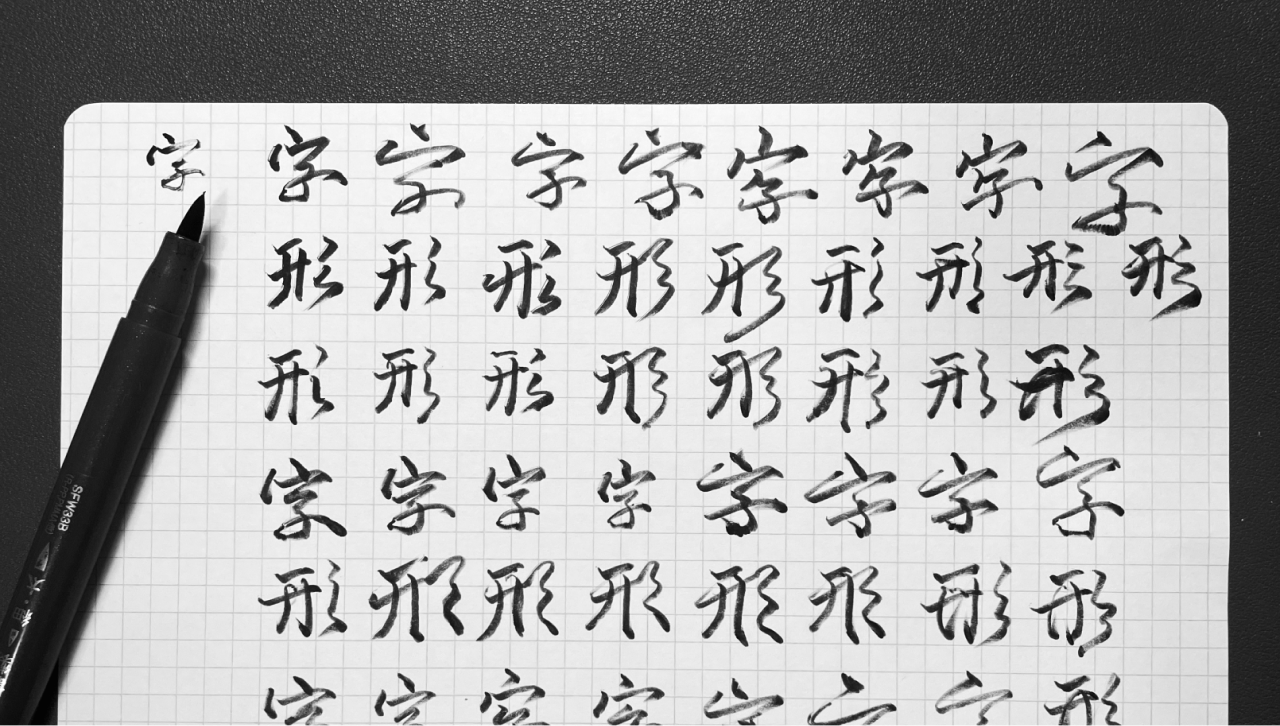 字字字字字字字字字
形形形形形形形形形
形形形形形形形形
字字字字字字字字
形形形形形形形形
SFW33B